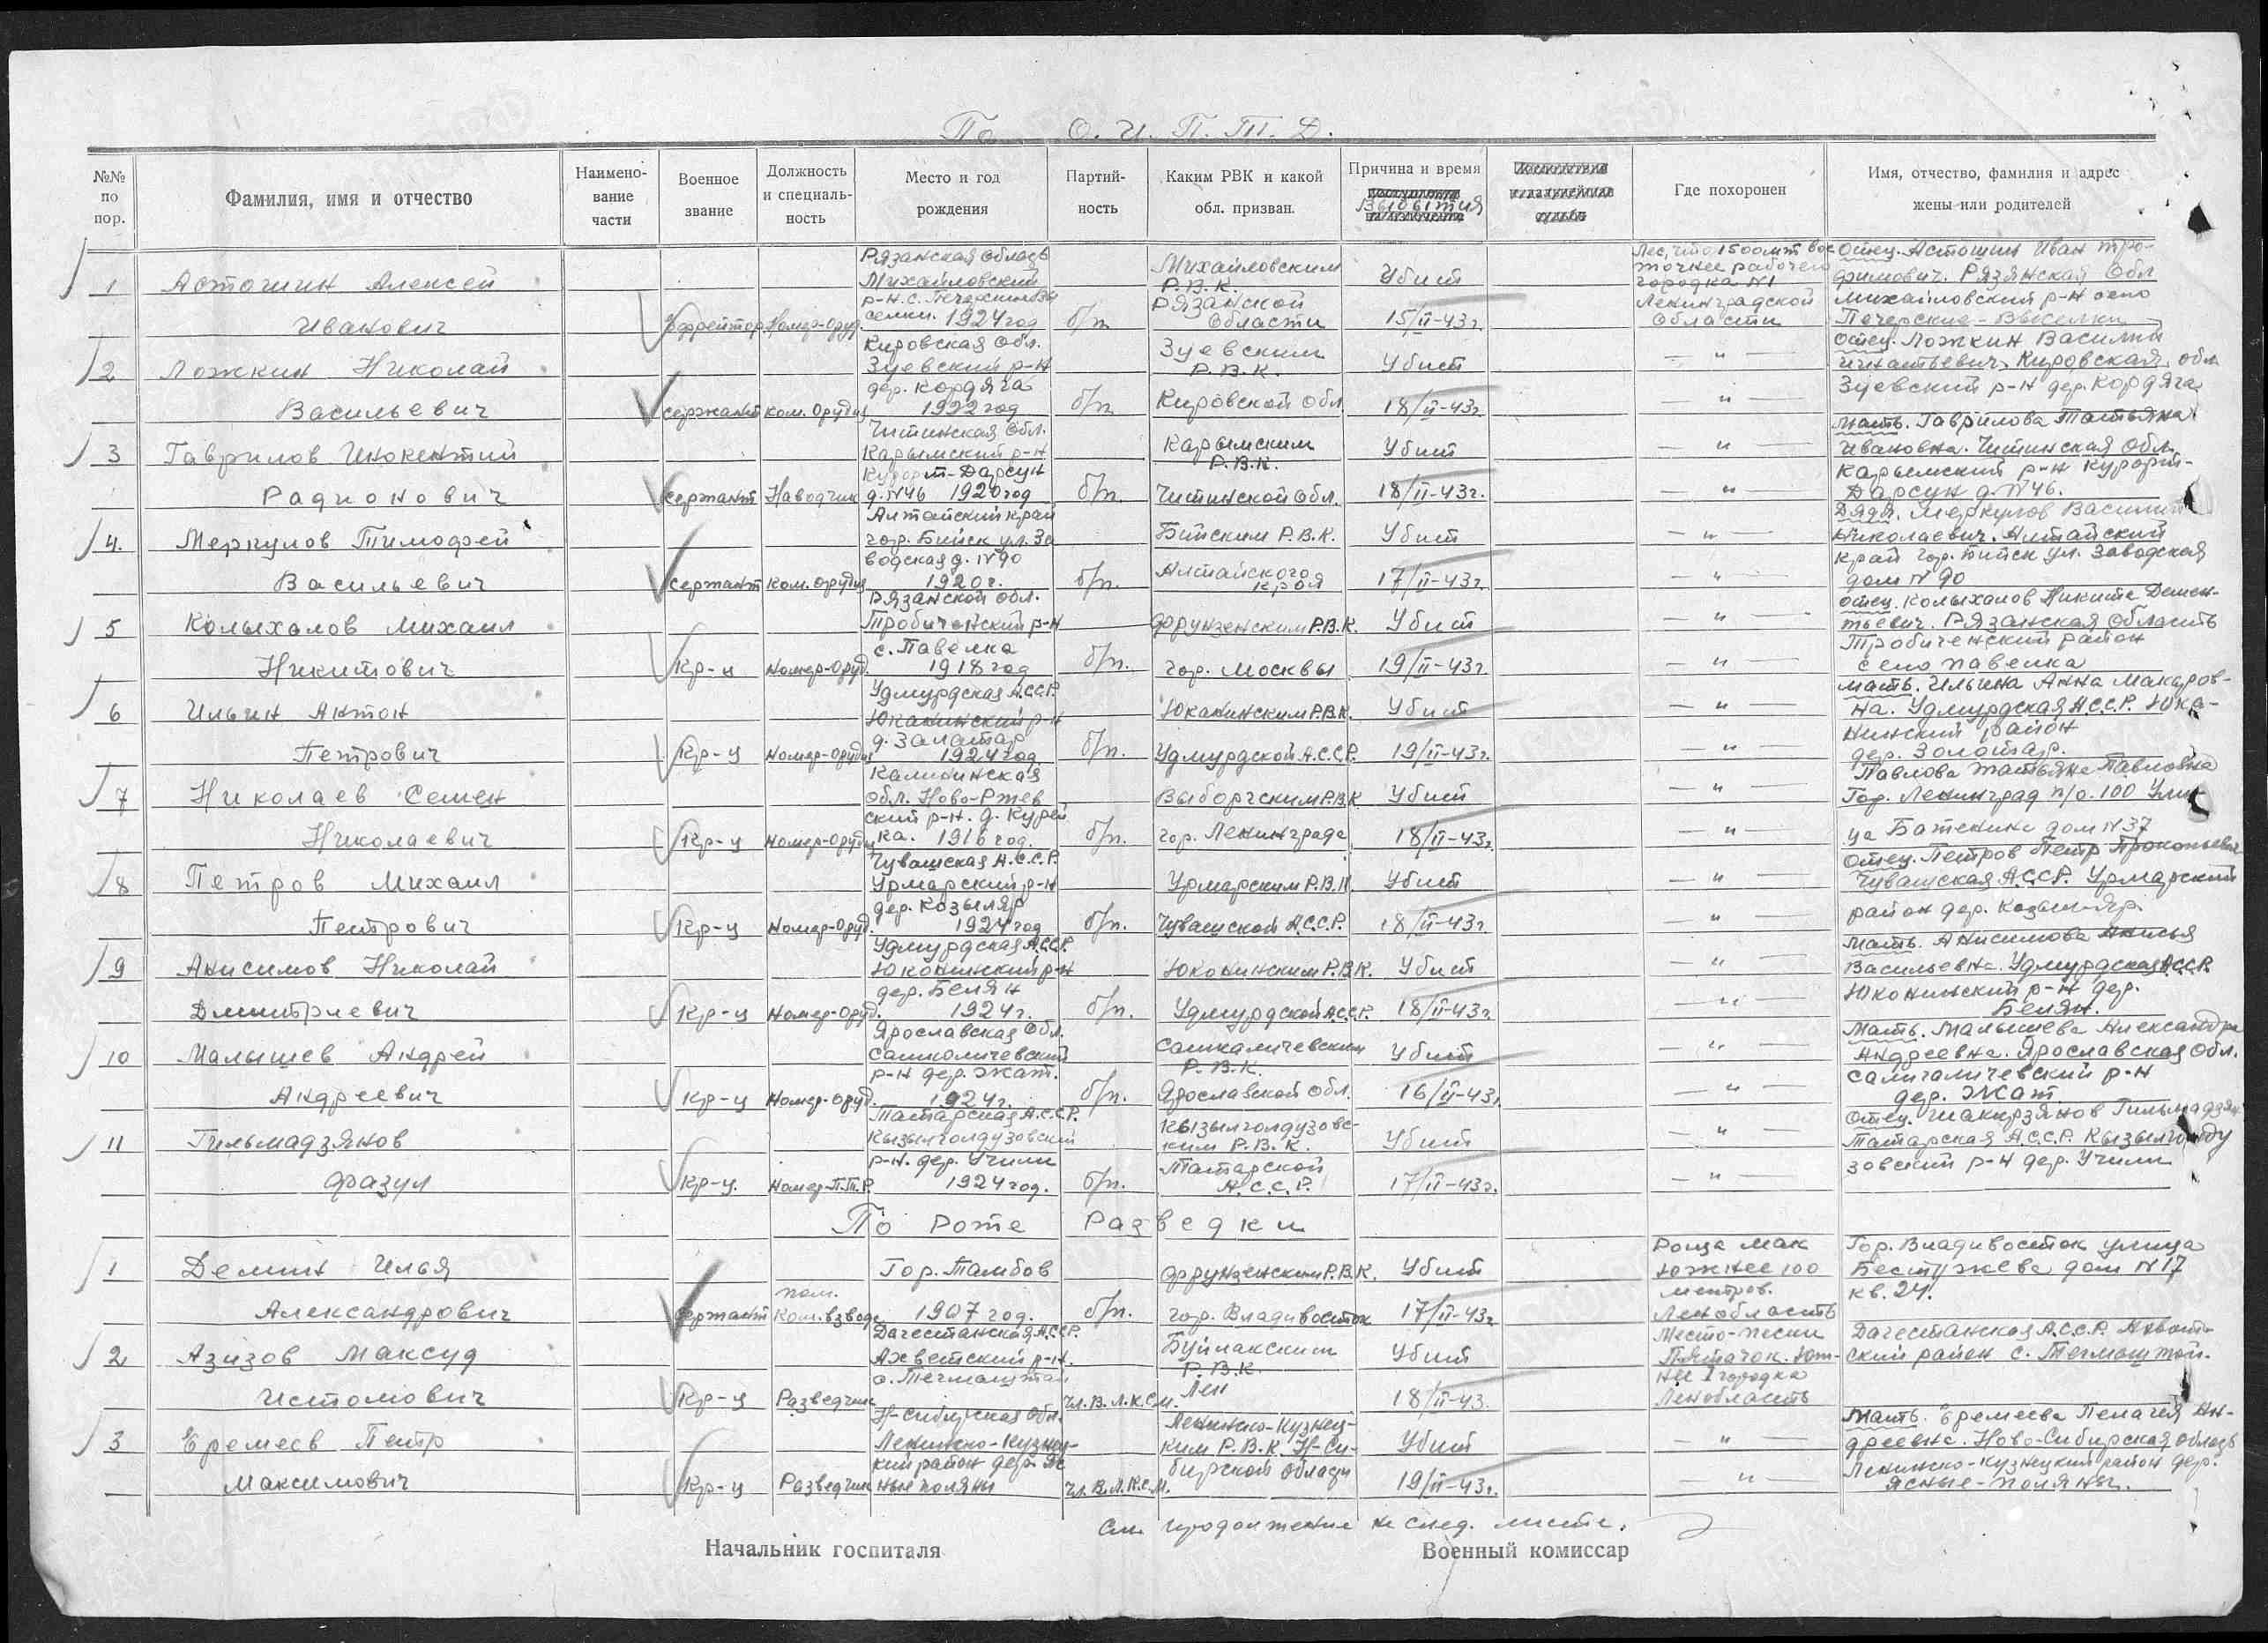 По О. И. П. Т. Д.
№№ по пор.
Фамилия, имя и отчество
Наимено-
вание
части
Военное
звание
Должность
и специаль-
ность
Место и год
рождения
Партий-
ность
Каким РВК и какой
обл. призван.
Причина и время
Выбытия
Где похоронен
Имя, отчество, фамилия и адрес
жены или родителей
1
Астошин Алексей
Иванович
Ефрейтор
Номер-оруд.
Рязанская область
Михайловский
р-н. с.
1924 год
б/п
Михайловским
Р.В.К.
Рязанской
Области
Убит
15/II-43г.
Лес, что 1500 мт вос
точнее рабочего
городка №1
Ленинградской
Области
Отец. Астошин Иван Тро-
фимович. Рязанская Обл
Михайловский р-н село
Печерские-Выселки
2
Ложкин Николай
Васильевич
сержант
ком. орудия
Кировская обл.
Зуевский р-н
дер. Кордяга
1922 год
б/п
Зуевским
Р.В.К.
Кировской Обл
Убит
18/II-43г.
— " —
— " —
Отец. Ложкин Василий
Игнатьевич. Кировская обл
Зуевский р-н дер. Кордяга
3
Гаврилов Инокентий
Радионович
сержант
Наводчик
Читинская Обл.
Карымский р-н
Курорт-Дарсун
д. №46 1920 год
б/п.
Карымским
Р.В.К.
Читинской Обл.
Убит
18/II-43г.
— " —
— " —
Мать. Гаврилова Татьяна
Ивановна. Читинская Обл.
Карымский р-н курорт-
Дарсун д. №46.
4.
Меркулов Тимофей
Васильевич
сержант
ком. орудия
Алтайский край
гор. Бийск ул. За
водская д. №90
1920 г.
б/п.
Бийским Р.В.К.
Алтайского
края
Убит
17/II-43г.
— " —
— " —
Дядя. Меркулов Василий
Николаевич. Алтайский
край гор. Бийск ул. Заводская
дом № 90
5
Колыхалов Михаил
Никитович
Кр-ц
Номер-оруд.
Рязанской обл.
Тробиченский р-н
с. Павелка
1918 год
б/п.
Фрунзенским Р.В.К.
гор. Москвы
Убит
19/II-43г.
— " —
— " —
Отец. Колыхалов Никита Демен-
тьевич. Рязанская Область
Тробиченский район
село Павелка
6
Ильин Антон
Петрович
Кр-ц
Номер-орудия
Удмурдская А.С.С.Р.
Юкаминский р-н
д. Залатар
1924 год
б/п.
Юкаминским Р.В.К.
Удмурдской А.С.С.Р.
Убит
19/II-43г.
— " —
— " —
Мать. Ильина Анна Макаров-
на. Удмурдская А.С.С.Р. Юка-
минский район
дер. Золотар.
7
Николаев Семен
Николаевич
Кр-ц
Номер-орудия
Калининская
обл. Ново-Ржев
ский р-н. д. Курей
ка. 1916 год.
б/п.
Выборгским Р.В.К
гор. Ленинграда
Убит
18/II-43г.
— " —
— " —
Павлова Татьяна Павловна
Гор. Ленинград п/о. 100 Ули
ца Батенина дом №37
8
Петров Михаил
Петрович
Кр-ц
Номер-Оруд.
Чувашская А.С.С.Р.
Урмарский р-н
дер. Козыляр
1924 год
б/п.
Урмарским Р.В.К
Чувашской А.С.С.Р.
Убит
18/II-43г.
— " —
— " —
Отец. Петров Петр Прокопьевич
Чувашская А.С.С.Р. Урмарский
район дер. Козыл-яр.
9
Анисимов Николай
Дмитриевич
Кр-ц
Номер-Оруд.
Удмурдская А.С.С.Р.
Юконинский р-н
дер. Белян
1924 г.
б/п.
Юконинским Р.В.К.
Удмурдской А.С.С.Р.
Убит
18/II-43г.
— " —
— " —
Мать. Анисимова Анисья
Васильевна. Удмурдская А.С.С.Р.
Юконинский р-н дер.
Белян.
10
Малышев Андрей
Андреевич
Кр-ц
Номер-оруд.
Ярославская Обл.
Солигаличевский
р-н дер. Жат.
1924 г.
б/п.
Солигаличевским
Р.В.К.
Ярославской обл.
Убит
16/II-43г.
— " —
— " —
Мать. Малышева Александра
Андреевна. Ярославская Обл.
Салигаличевский р-н
дер. Жат
11
Гильмадзянов
Фазул
Кр-ц.
Номер-П.Т.Р.
Татарская А.С.С.Р.
Кызылголдузовский
р-н. дер. Учили
1924 год.
б/п.
Кызылголдузовс-
ким Р.В.К.
Татарской
А.С.С.Р.
Убит
17/II-43г.
— " —
— " —
Отец. Шакирзянов Гильмадзян
Татарская А.С.С.Р. Кызылголду
зовский р-н дер. Учили
По Роте Разведки
1
Демин Илья
Александрович
сержант
пом.
Ком. взвода
Гор. Тамбов
1907 год.
б/п.
Фрунзенским Р.В.К.
гор. Владивосток
Убит
17/II-43г
Роща Мак
южнее 100
метров.
Ленобласть
Гор. Владивосток улица
Бестужева дом №17
кв. 24.
2
Азизов Максуд
Истомович
Кр-ц
Разведчик
Дагестанская А.С.С.Р.
Ахветский р-н.
Чл. В.Л.К.С.М.
Буйнакским
Р.В.К.
Лен
Убит
18/II-43.
Место-пески
Пятачок. Юж-
нее 1 городка
Ленобласть
Дагестанская А.С.С.Р.
ский район с.
3
Еремеев Петр
Максимович
Кр-ц
Разведчик
Н-Сибирская Обл.
Ленинско-Кузнец-
кий район дер. Яс
ные поляны
Чл. В.Л.К.С.М.
Ленинско-Кузнец-
ким Р.В.К. Н-Си-
бирской области
Убит
19/II-43г.
— " —
— " —
Мать. Еремеева Пелагея Ан-
дреевна. Ново-Сибирская область
Ленинско-Кузнецкий район дер.
Ясные-поляны.
См. продолжение на след. листе.
Начальник госпиталя
Военный комиссар